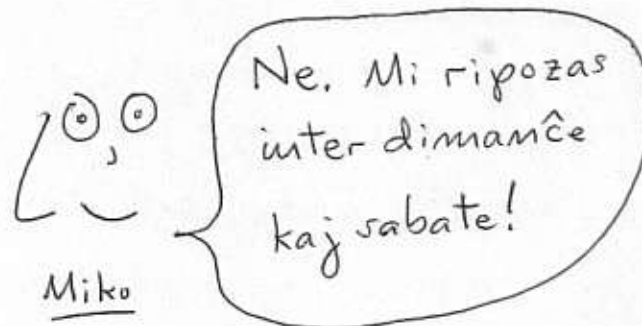 Ne. Mi ripozas
inter dimanĉe
kaj sabate!
Miko